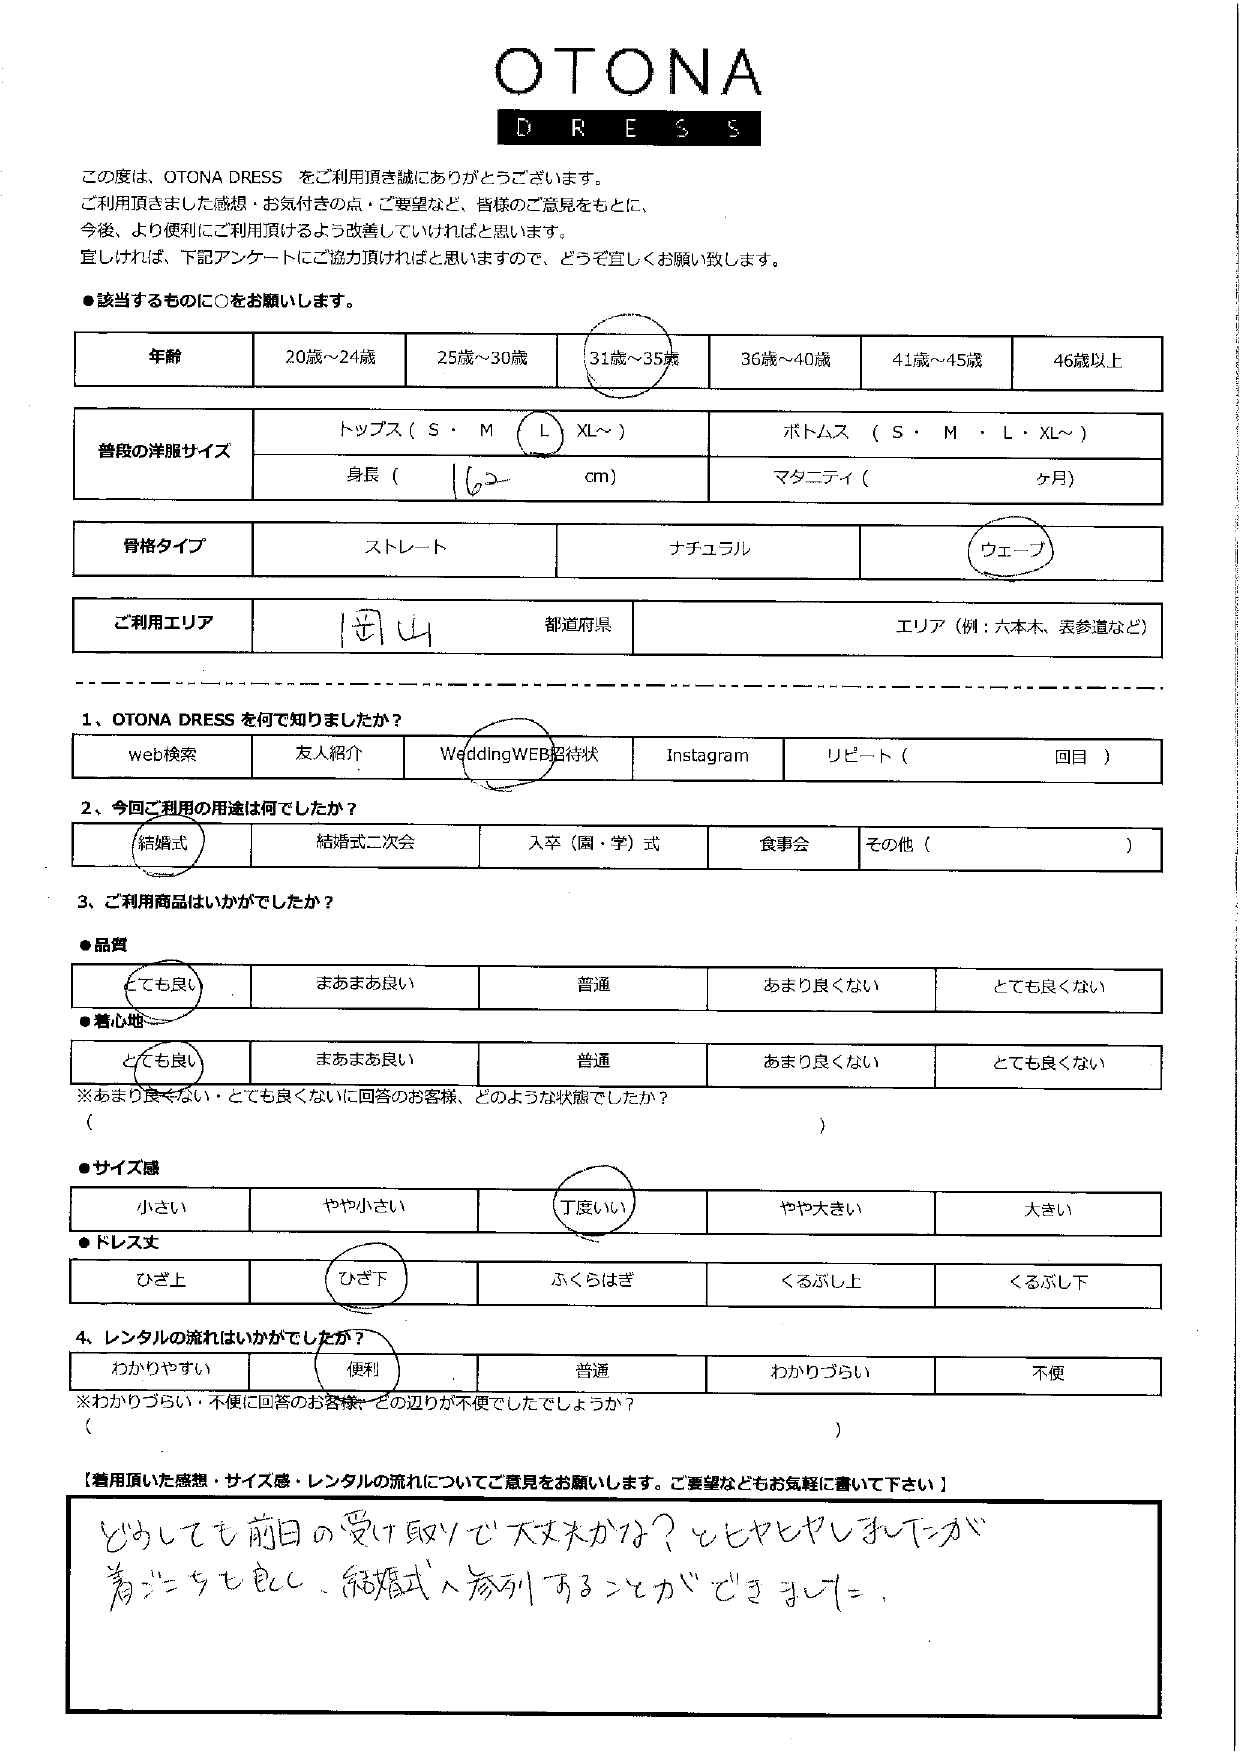 OTONA
DRESS
この度は、OTONA DRESS をご利用頂き誠にありがとうございます。
ご利用頂きました感想・お気付きの点・ご要望など、皆様のご意見をもとに、
今後、より便利にご利用頂けるよう改善していければと思います。
宜しければ、下記アンケートにご協力頂ければと思いますので、どうぞ宜しくお願い致します。
●該当するものに○をお願いします。
年齢 20歳～24歳 25歳～30歳 31歳～35歳 36歳～40歳 41歳～45歳 46歳以上
普段の洋服サイズ トップス ( S ・ M L XL～ ) ボトムス ( S ・ M ・ L ・ XL～ )
身長 ( 162 cm) マタニティ ( ヶ月)
骨格タイプ ストレート ナチュラル ウェーブ
ご利用エリア 岡山 都道府県 エリア（例：六本木、表参道など）
1、OTONA DRESS を何で知りましたか？
web検索 友人紹介 WeddingWEB招待状 Instagram リピート ( 回目 )
2、今回ご利用の用途は何でしたか？
結婚式 結婚式二次会 入卒（園・学）式 食事会 その他 ( )
3、ご利用商品はいかがでしたか？
●品質
とても良い まあまあ良い 普通 あまり良くない とても良くない
●着心地
とても良い まあまあ良い 普通 あまり良くない とても良くない
※あまり良くない・とても良くないに回答のお客様、どのような状態でしたか？
( )
●サイズ感
小さい やや小さい 丁度いい やや大きい 大きい
●ドレス丈
ひざ上 ひざ下 ふくらはぎ くるぶし上 くるぶし下
4、レンタルの流れはいかがでしたか？
わかりやすい 便利 普通 わかりづらい 不便
※わかりづらい・不便に回答のお客様、どの辺りが不便でしたでしょうか？
( )
【着用頂いた感想・サイズ感・レンタルの流れについてご意見をお願いします。ご要望などもお気軽に書いて下さい】
どうしても前日の受け取りで大丈夫かな？とヒヤヒヤしましたが
着ごこちも良くし、結婚式へ参列することができました。